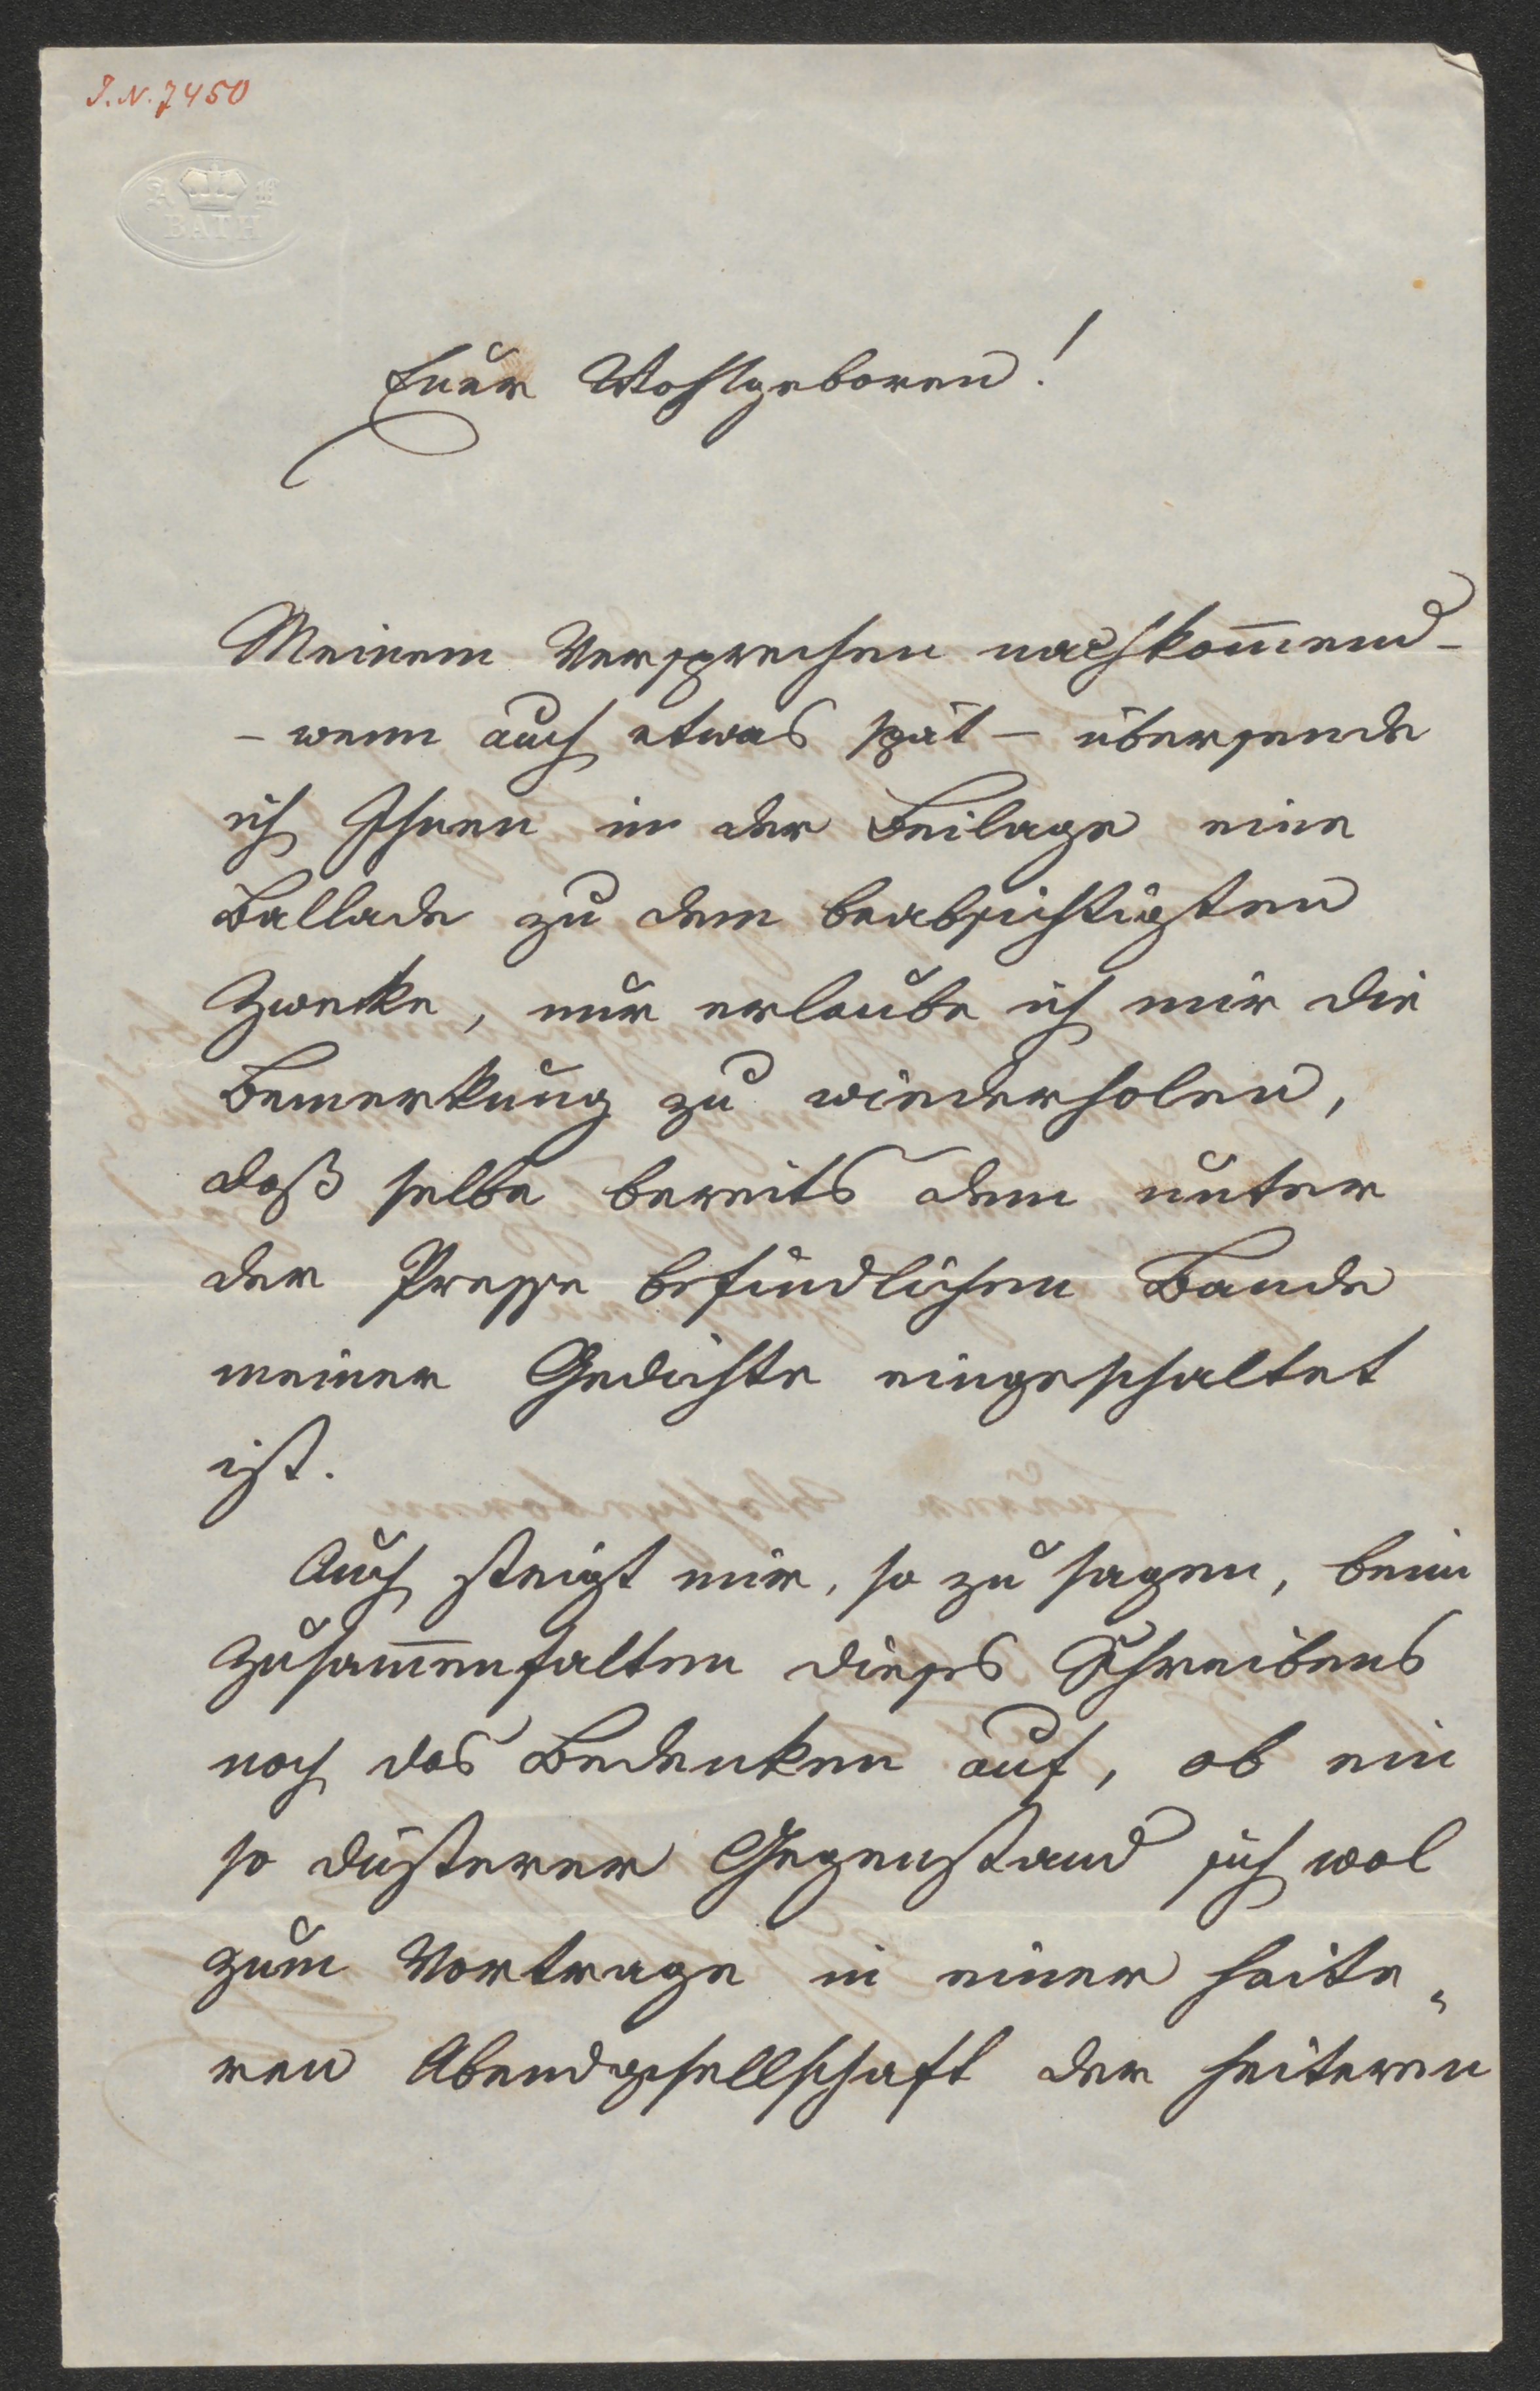 J.N. 7450
BATH
Euer Wohlgeboren!
Meinem Versprechen nachkom̅end -
- wenn auch etwas spät - übersende
ich Ihnen in der Beilage eine
Ballade zu dem beabsichtigten
Zwecke, nur erlaube ich mir die
Bemerkung zu wiederholen,
daß selbe bereits dem unter
der Presse befindlichen Bande
meiner Gedichte eingeschaltet
ist.
Auch steigt mir, so zu sagen, beim
Zusam̅enfalten dieses Schreibens
noch das Bedenken auf, ob ein
so düsterer Gegenstand sich wol
zum Vortrage in einer heite„
ren Abendgesellschaft der heiteren